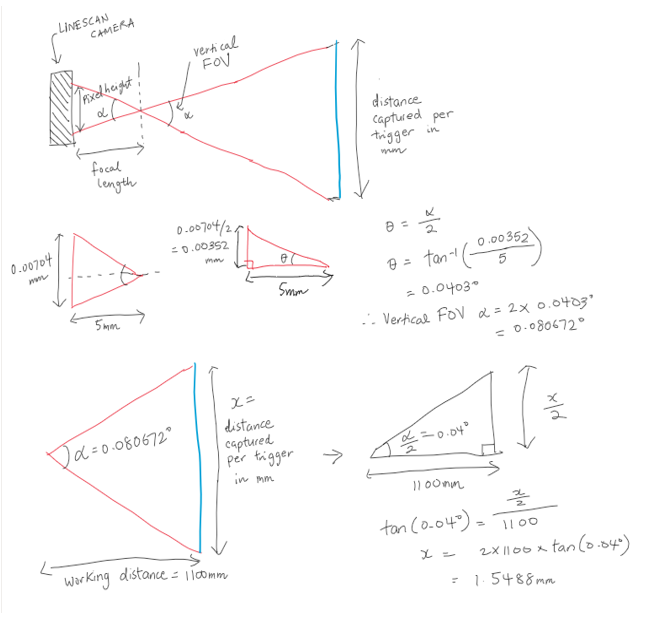 LINESCAN
CAMERA
vertical
FOV
Pixel height
α
α
focal
length
distance
captured per
trigger in
mm
0.00704
mm
5mm
0.00704/2
= 0.00352
mm
θ
5mm
θ = α/2
θ = tan⁻¹(0.00352/5)
= 0.0403°
∴ Vertical FOV α = 2 × 0.0403°
= 0.080672°
α = 0.080672°
x =
distance
captured
per trigger
in mm
Working distance = 1100mm
α/2 = 0.04°
x/2
1100mm
tan(0.04°) = x/2/1100
x = 2×1100×tan(0.04°)
= 1.5488mm